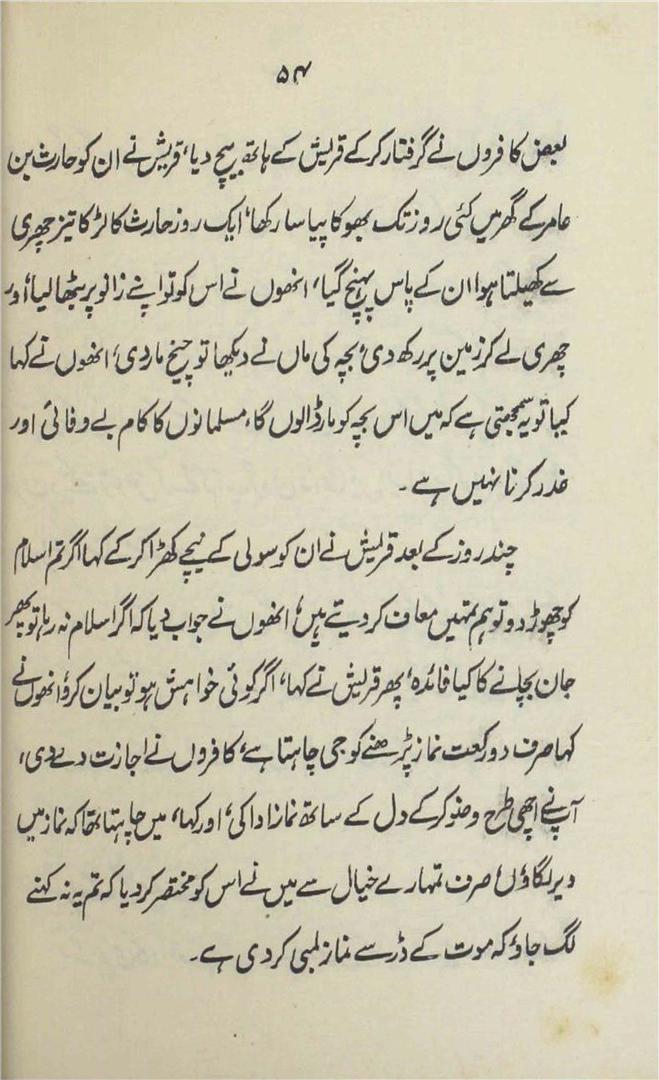 ۵۴
بعض کافروں نے گرفتار کرکے قریش کے ہاتھ بیچ دیا، قریش نے ان کو حارث بن
عامر کے گھر میں کئی روز تک بھوکا پیاسا رکھا، ایک روز حارث کا لڑکا تیز چھری
سے کھیلتا ہوا ان کے پاس پہنچ گیا، انھوں نے اس کو تو اپنے زانو پر بٹھا لیا، اور
چھری لے کر زمین پر رکھ دی، بچہ کی ماں نے دیکھا تو چیخ ماردی، انھوں نے کہا
کیا تو یہ سمجھتی ہے کہ میں اس بچہ کو مار ڈالوں گا، مسلمانوں کا کام بے وفائی اور
غدر کرنا نہیں ہے۔
چند روز کے بعد قریش نے ان کو سولی کے نیچے کھڑا کرکے کہا اگر تم اسلام
کو چھوڑ دو تو ہم تمہیں معاف کر دیتے ہیں، انھوں نے جواب دیا کہ اگر اسلام نہ رہا تو پھر
جان بچانے کا کیا فائدہ، پھر قریش نے کہا، اگر کوئی خواہش ہو تو بیان کرو، انھوں نے
کہا صرف دو رکعت نماز پڑھنے کو جی چاہتا ہے، کافروں نے اجازت دے دی،
آپ نے اچھی طرح وضو کرکے دل کے ساتھ نماز ادا کی، اور کہا، میں چاہتا تھا کہ نماز میں
دیر لگاؤں، صرف تمہارے خیال سے میں نے اس کو مختصر کر دیا کہ تم یہ نہ کہنے
لگ جاؤ کہ موت کے ڈر سے نماز لمبی کر دی ہے۔